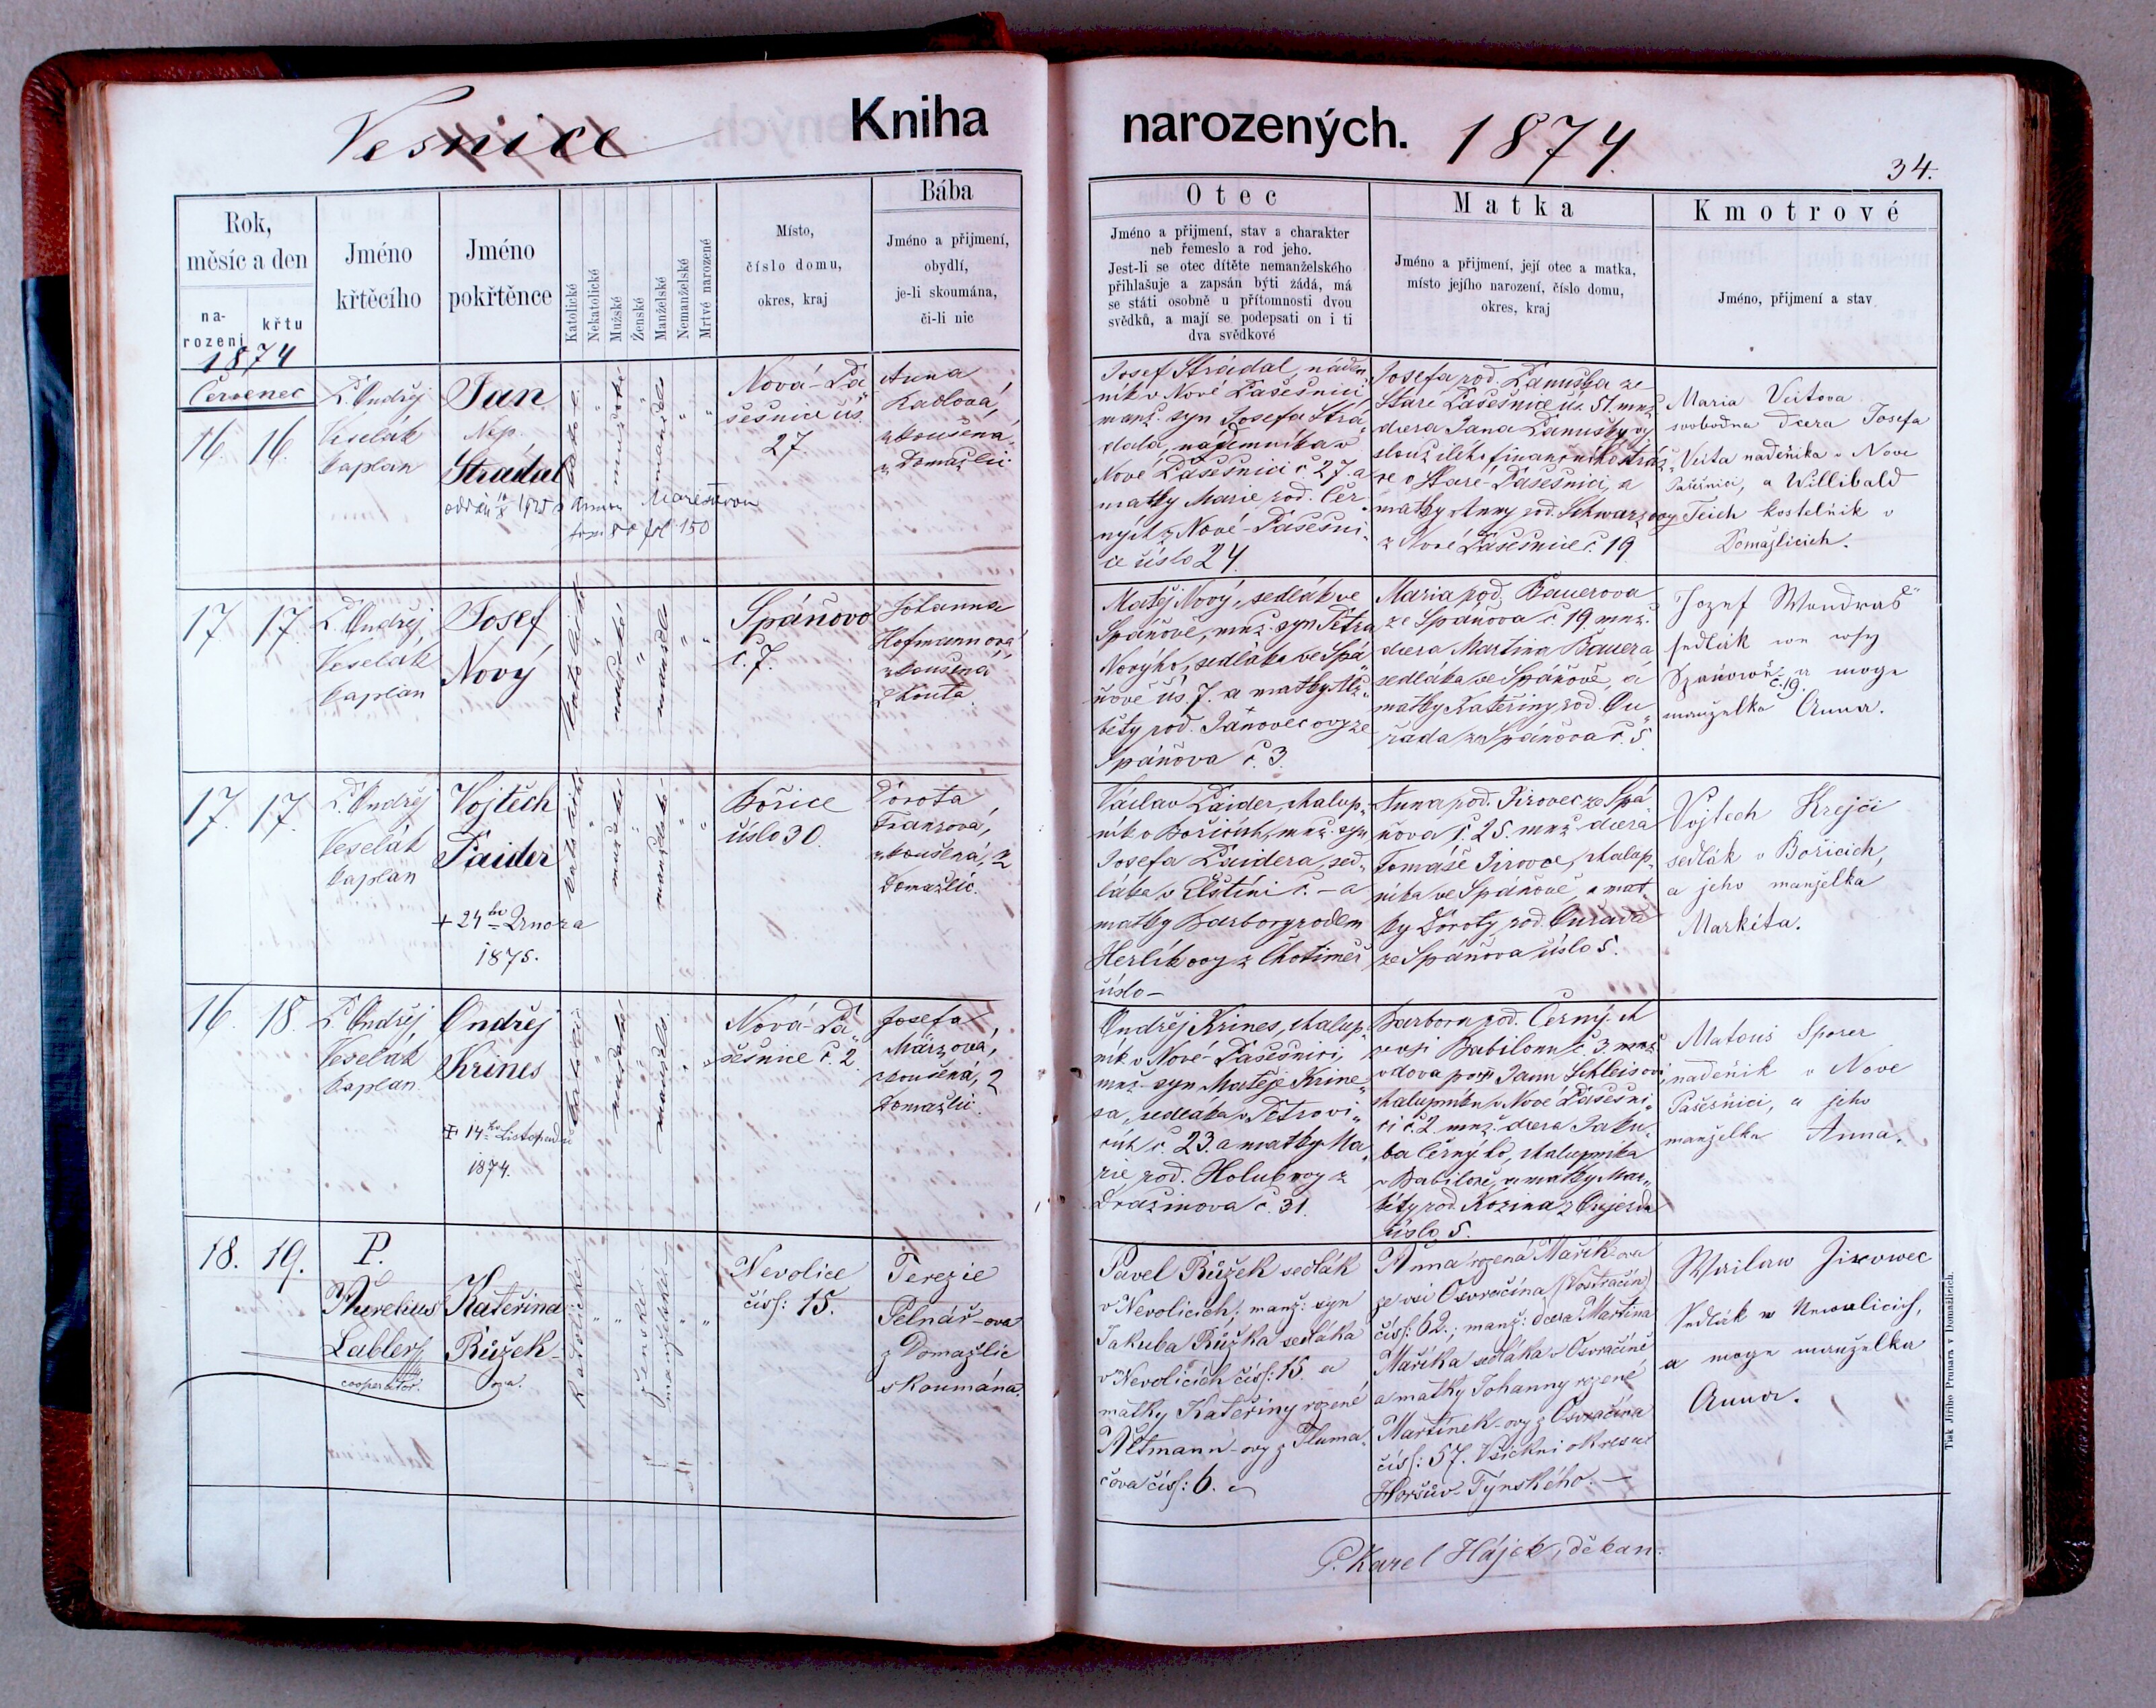 Vesnice
Kniha
narozených.
1874.
34.
Rok,
měsíc a den
na-
rození
křtu
Jméno
křtěcího
Jméno
pokřtěnce
Katolické
Nekatolické
Mužské
Ženské
Manželské
Nemanželské
Mrtvě narozené
Místo,
číslo domu,
okres, kraj
Bába
Jméno a přijmení,
obydlí,
je-li skoumána,
či-li nic
Otec
Jméno a přijmení, stav a charakter
neb řemeslo a rod jeho.
Jest-li se otec dítěte nemanželského
přihlašuje a zapsán býti žádá, má
se státi osobně u přítomnosti dvou
svědků, a mají se podepsati on i ti
dva svědkové
Matka
Jméno a přijmení, její otec a matka,
místo jejího narození, číslo domu,
okres, kraj
Kmotrové
Jméno, přijmení a stav
1874
Červenec
16. 16.
P. Ondřej
Veselák
kaplan
Jan
Nep.
Stradal
fol 150
Nová-Pa
sešnice čís.
27.
Anna
Kadlová,
zkoušená,
z Domažlic
Josef Strádal, náden
ník v Nové Pasešnici
manž. syn Josefa Strá
dala, nájemníka v
Nové Pasešnici č. 27. a
matky Marie rod. Čer
ných z Nové-Pasešni
ce číslo 24.
Josefa rod. Hanuška ze
Staré Pasešnice čís. 51. mnž.
dcera Jana Hanušky vy
sloužilého finančního stráž
ce v Staré-Pasešnici, a
matky Anny rod. Schwarzovy
z Nové Pasešnice č. 19
Maria Veitova
svobodna dcera Josefa
Veita nadeňika v Nove
Pašešnici, a Willibald
Teich kostelnik v
Domažlicich.
17. 17.
P. Ondřej
Veselák
kaplan
Josef
Nový
katolické
mužské
manžels
Spáňovo
č. 7.
Johanna
Hofmannová
zkoušená
z Kouta.
Matěj Nový, sedlák ve
Spáňově, mnž. syn Petra
Nového, sedláka ve Spá
ňově čís. 7. a matky Alž
běty rod. Jánovecovy ze
Spáňova č. 3.
Maria rod. Bauerova
ze Spáňova č. 19. mnž.
dcera Martina Bauera
sedláka ve Spáňově, a
matky Kateřiny rod. Ou
řada ze Spáňova č. 5
Jozef Wondraš
sedlák we wsy
Spáňowě č. 19. a moge
manželka Anna.
17. 17.
P. Ondřej
Veselák
kaplan
Vojtěch
Paider
+ 24ho Února
1875.
katolické
mužské
manžels
Bořice
číslo 30.
Dorota
Franzová,
zkoušená, z
Domažlic.
Václav Paider, chalup
ník v Bořicích, mnž. syn
Josefa Paidera, sed
láka v Elstíni č. – a
matky Barbory rodem
Herlíkovy z Chotiměř
číslo –
Anna rod. Jirovec ze Spá
ňova č. 25. mnž. dcera
Tomáše Jirovce, chalup
níka ve Spáňově, a mat
ky Doroty rod. Ouřada
ze Spáňova číslo 5.
Vojtech Krejči
sedlák v Bořicich,
a jeho manželka
Markéta.
16. 18.
P. Ondřej
Veselák
kaplan.
Ondřej
Krines
+ 14ho Listopadu
1874.
katolické
mužské
manžels.
Nová-Pa
sešnice č. 2.
Josefa
Märzova,
zkoušená, z
Domažlic.
Ondřej Krines, chalup
ník v Nové-Pasešnici,
mnž. syn Matěje Krine
sa, sedláka v Petrovi
cích č. 23. a matky Ma
rie rod. Holubovy z
Dražinova č. 31.
Barbora rod. Černých
ze vsi Babilonu č. 3. mnž
vdova po Janu Schleisovi,
chalupníku v Nové Pasešni
ci č. 2. mnž. dcera Jaku
ba Černýho, chalupníka
v Babiloně, a matky Mar
kéty rod. Kozina z Oujezda
číslo 5.
Matous Sporer
nadeňik v Nove
Pašešnici, a jeho
manželka Anna.
18. 19.
P.
Aurelius
Labler
cooperator.
Kateřina
Růžek-
ova.
Katolické
ženské
manželské
Nevolice
čísl: 15.
Terezie
Pelnář-ova
z Domažlic
skoumána.
Pavel Růžek sedlák
v Nevolicích; manž: syn
Jakuba Růžka sedláka
v Nevolicích čísl: 15. a
matky Kateřiny rozené
Altmann-ovy z Tluma
čova čísl: 6.
Anna rozená Mařík-ova
ze vsi Osvračína (Vostračín)
čísl: 62.; manž: dcera Martina
Maříka sedláka v Osvračíně
a matky Johanny rozené
Martínek-ovy z Osvračína
čísl: 57. Všickni okresu
Horšův-Týnského. –
Waclaw Jirowec
Sedlák w Newolicich,
a moge manželka
Anna.
P. Karel Hájek, děkan.
Tisk Jiřího Prunara v Domažlicích.